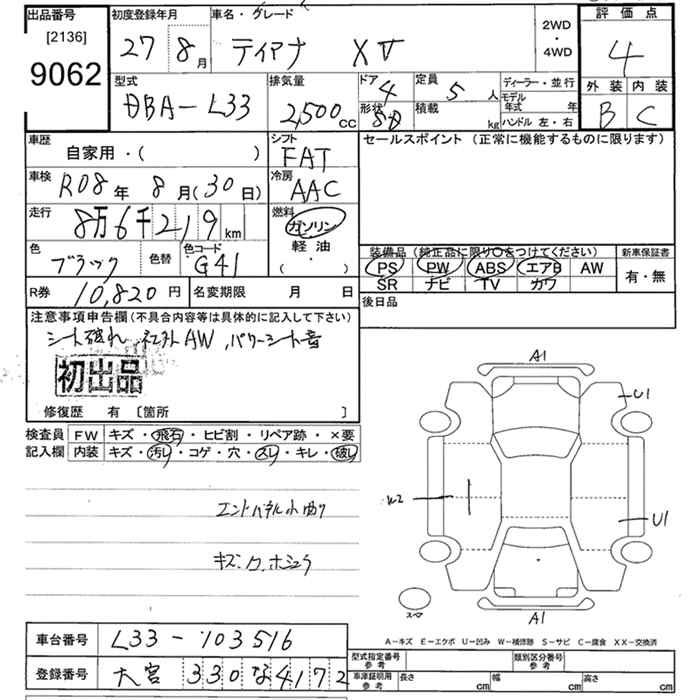 出品番号 初度登録年月 車名・グレード 2WD ・ 4WD 評価点
[2136]
9062 27 8月 ティアナ XV 4
型式 排気量 ドア 4 定員 5人 ディーラー・並行 外装 内装
DBA-L33 2,500cc 形状 積載 kg モデル年式 年 B C
ハンドル 左・右
車歴 シフト セールスポイント (正常に機能するものに限ります)
自家用・( ) FAT
車検 R08年 8月(30日) 冷房 AAC
走行 8万6千219km 燃料 ガソリン
軽油
・( )
色 ブラック 色替 色コード G41
装備品 (純正品に限り○をつけてください) 新車保証書
PS PW ABS エアB AW 有・無
SR ナビ TV カワ
R券 10,820円 名変期限 月 日 後日品
注意事項申告欄(不具合内容等は具体的に記入して下さい)
シート破れ、社外AW、パワーシート音
初出品
修復歴 有 [箇所 ]
検査員 FW キズ・飛石・ヒビ割・リペア跡・×要
記入欄 内装 キズ・汚レ・コゲ・穴・スレ・キレ・破レ
A1
U1
W2
U1
エンドパネル小曲り
A1
スペア
A-キズ E-エクボ U-凹み W-補修跡 S-サビ C-腐食 XX-交換済
車台番号 L33-103516
登録番号 大宮 330 な 4172
型式指定番号 参考 類別区分番号 参考
車庫証明用 参考 長さ cm 幅 cm 高さ cm